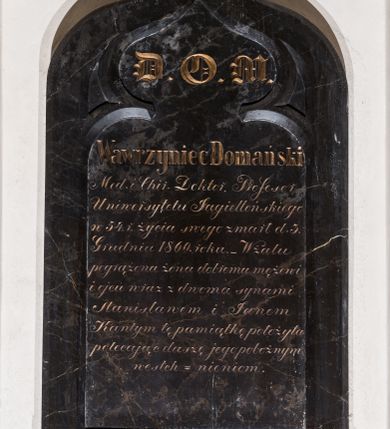 D. O. M.
Wawrzyniec Domański
Med. i Chir. Doktor, Profesor
Uniwersytetu Jagiellońskiego
w 54 r. życia swego zmarł d. 5.
Grudnia 1860. roku._ W żalu
pogrążona żona dobremu mężowi
i ojcu wraz z dwoma synami
Stanisławem i Janem
Kantym tę pamiątkę położyła
polecając duszę jego pobożnym
westch = nieniom.